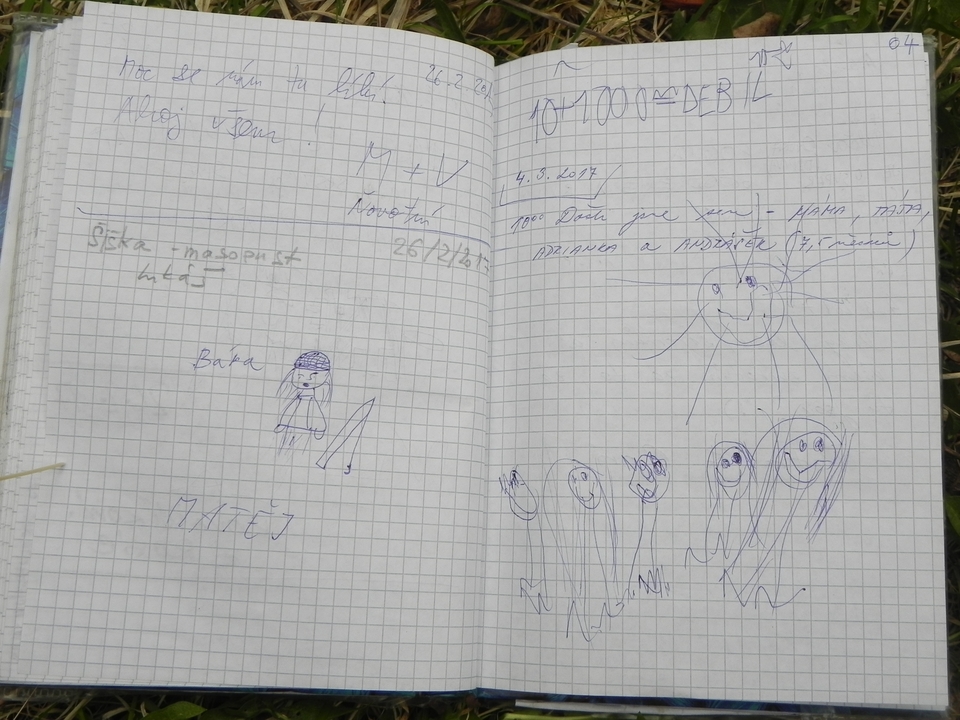 Moc se nám tu líbí! 26.2.201
Ahoj všem!
M + V
Novotní
Šiška - masopust 26/2/2017
Bára
MATĚJ
04
10+1000=DEBIL
4.3.2017
10⁰⁰ Došli jsme sem - MÁMA, TÁTA,
ADRIANKA a ANDRÁŠEK (7,5 měsíců)